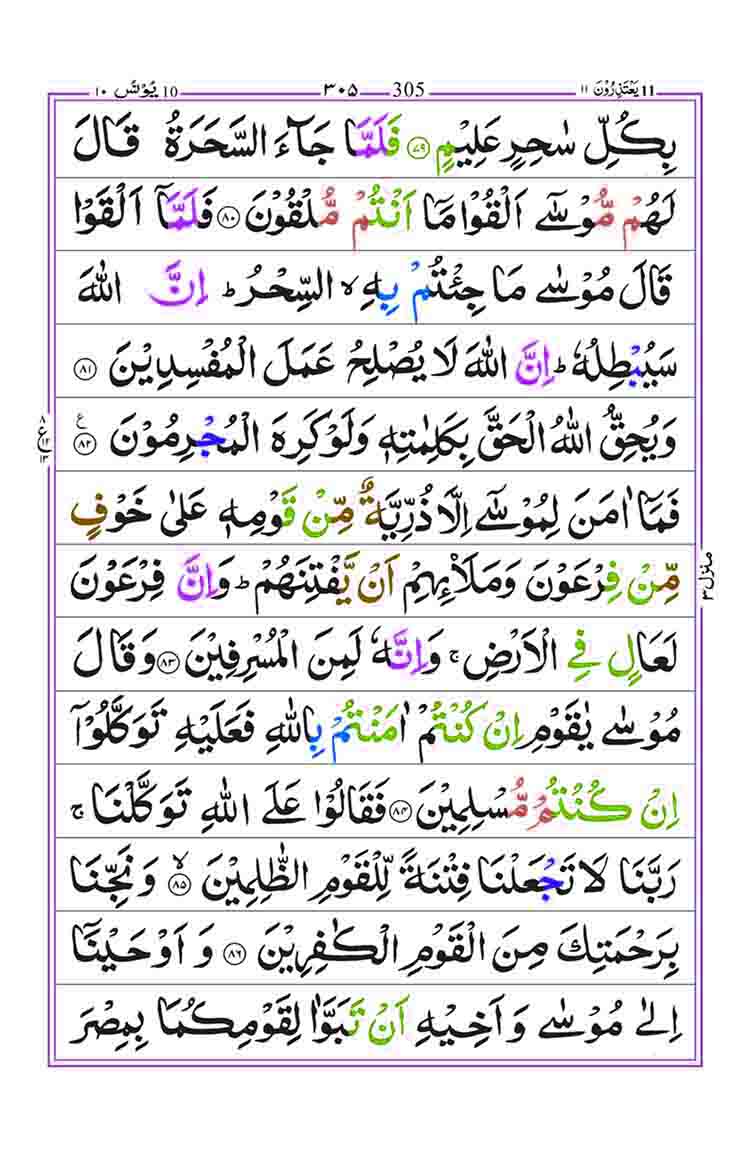 ١١ يَعْتَذِرُوْنَ 11 305 ٣٠٥ 10 يُوْنُس ١٠
بِكُلِّ سٰحِرٍ عَلِيْمٍ ﴿٧٩﴾ فَلَمَّا جَآءَ السَّحَرَةُ قَالَ
لَهُمْ مُّوْسٰۤى اَلْقُوْا مَاۤ اَنْتُمْ مُّلْقُوْنَ ﴿٨٠﴾ فَلَمَّاۤ اَلْقَوْا
قَالَ مُوْسٰى مَا جِئْتُمْ بِهِ ۙ السِّحْرُ ؕ اِنَّ اللّٰهَ
سَيُبْطِلُهٗ ؕ اِنَّ اللّٰهَ لَا يُصْلِحُ عَمَلَ الْمُفْسِدِيْنَ ﴿٨١﴾
وَيُحِقُّ اللّٰهُ الْحَقَّ بِكَلِمٰتِهٖ وَلَوْ كَرِهَ الْمُجْرِمُوْنَ ﴿٨٢﴾ ع
٨ ع ١٢ ١٣
فَمَاۤ اٰمَنَ لِمُوْسٰۤى اِلَّا ذُرِّيَّةٌ مِّنْ قَوْمِهٖ عَلٰى خَوْفٍ
مِّنْ فِرْعَوْنَ وَمَلَا۟ئِهِمْ اَنْ يَّفْتِنَهُمْ ؕ وَاِنَّ فِرْعَوْنَ
منزل ٣
لَعَالٍ فِي الْاَرْضِ ۚ وَاِنَّهٗ لَمِنَ الْمُسْرِفِيْنَ ﴿٨٣﴾ وَقَالَ
مُوْسٰى يٰقَوْمِ اِنْ كُنْتُمْ اٰمَنْتُمْ بِاللّٰهِ فَعَلَيْهِ تَوَكَّلُوْۤا
اِنْ كُنْتُمْ مُّسْلِمِيْنَ ﴿٨٤﴾ فَقَالُوْا عَلَى اللّٰهِ تَوَكَّلْنَا ۚ
رَبَّنَا لَا تَجْعَلْنَا فِتْنَةً لِّلْقَوْمِ الظّٰلِمِيْنَ ﴿٨٥﴾ ۙ وَنَجِّنَا
بِرَحْمَتِكَ مِنَ الْقَوْمِ الْكٰفِرِيْنَ ﴿٨٦﴾ وَاَوْحَيْنَاۤ
اِلٰى مُوْسٰى وَاَخِيْهِ اَنْ تَبَوَّاٰ لِقَوْمِكُمَا بِمِصْرَ